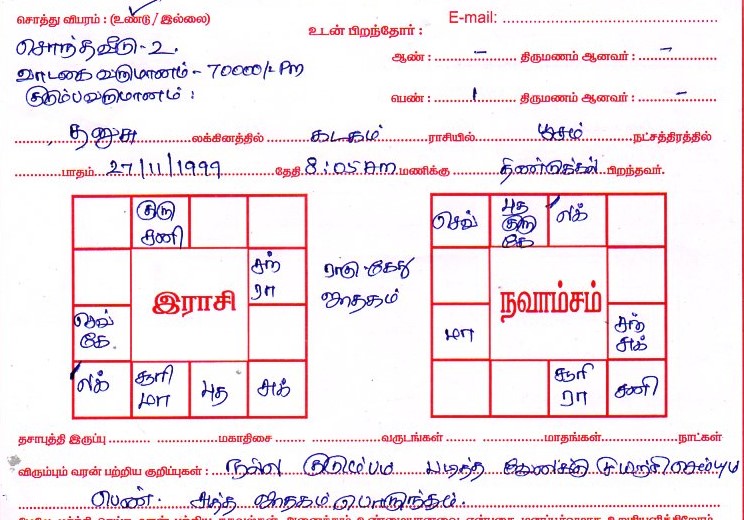 சொத்து விபரம் : (உண்டு / இல்லை)
E-mail:
உடன் பிறந்தோர் :
சொந்தவீடு - 2.
ஆண் : - திருமணம் ஆனவர் : -
வாடகை வருமானம் - 70000/- Pm
குடும்பவருமானம் :
பெண் : 1 திருமணம் ஆனவர் : -
தனுசு லக்கினத்தில் கடகம் ராசியில் பூசம் நட்சத்திரத்தில்
பாதம். 27/11/1999 தேதி 8:05 Am மணிக்கு திண்டுக்கல் பிறந்தவர்.
குரு சனி
சந் ரா
இராசி
செவ் கே
லக் சூரி மா புத சுக்
ராகு கேது
ஜாதகம்
செவ் புத குரு கே லக்
நவாம்சம்
மா
சந் சுக்
சூரி ரா சனி
தசாபுத்தி இருப்பு மகாதிசை வருடங்கள் மாதங்கள் நாட்கள்
விரும்பும் வரன் பற்றிய குறிப்புகள் : நல்ல குடும்பம் படித்த
பெண். சுத்த ஜாதகம் பொருந்தும்.